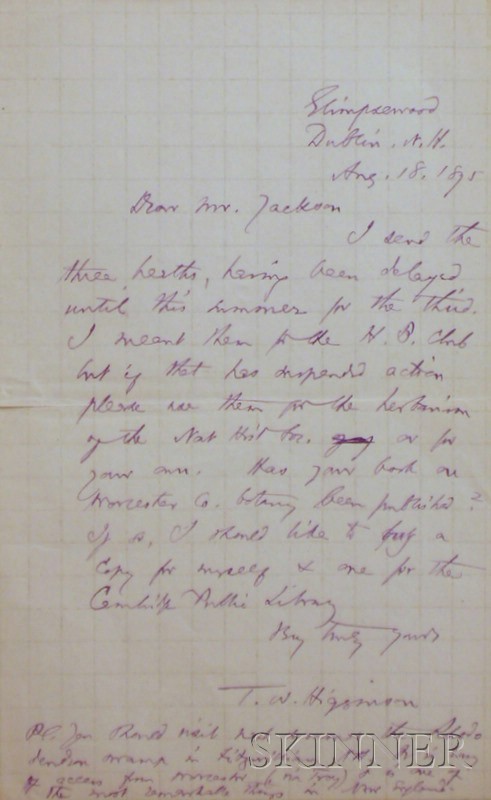 Glimpsewood
Dublin. N.H.
Aug. 18. 1895
Dear Mr. Jackson
I send the
three heaths, having been delayed
until this summer for the third.
I meant them for the H. B. Club
but if that has suspended action
please use them for the herbarium
of the Nat Hist Soc. or for
your own. Has your book on
Worcester Co. botany been published?
If so, I should like to buy a
copy for myself & one for the
Cambridge Public Library
Very truly yours
T. W. Higginson
P.S. You should visit next the Rhodo
dendron swamp in Fitzwilliam, N.H.
of access from Worcester & is one of
the most remarkable things in New England.
SKINNER